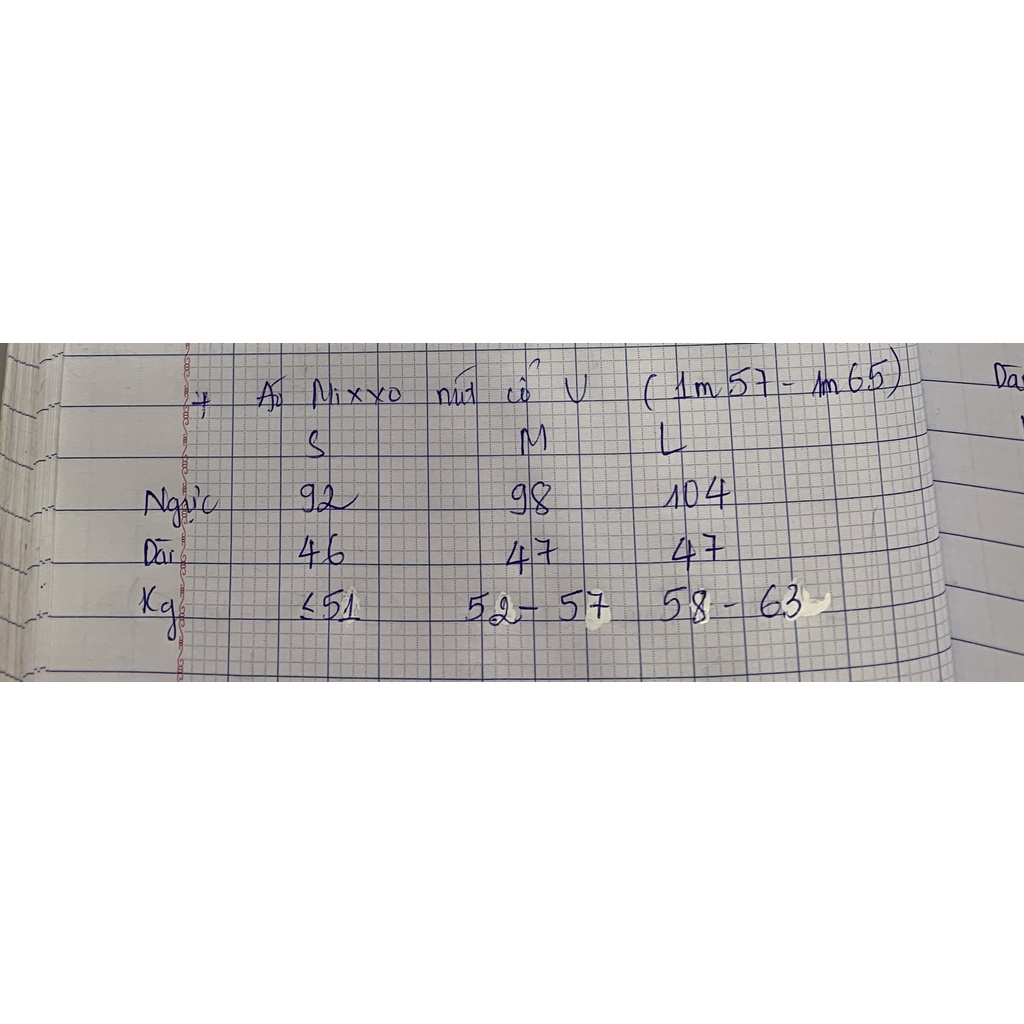 + Áo Mixxo nút cổ V (1m57 - 1m65)
S M L
Ngực 92 98 104
Dài 46 47 47
Kg ≤51 52 - 57 58 - 63